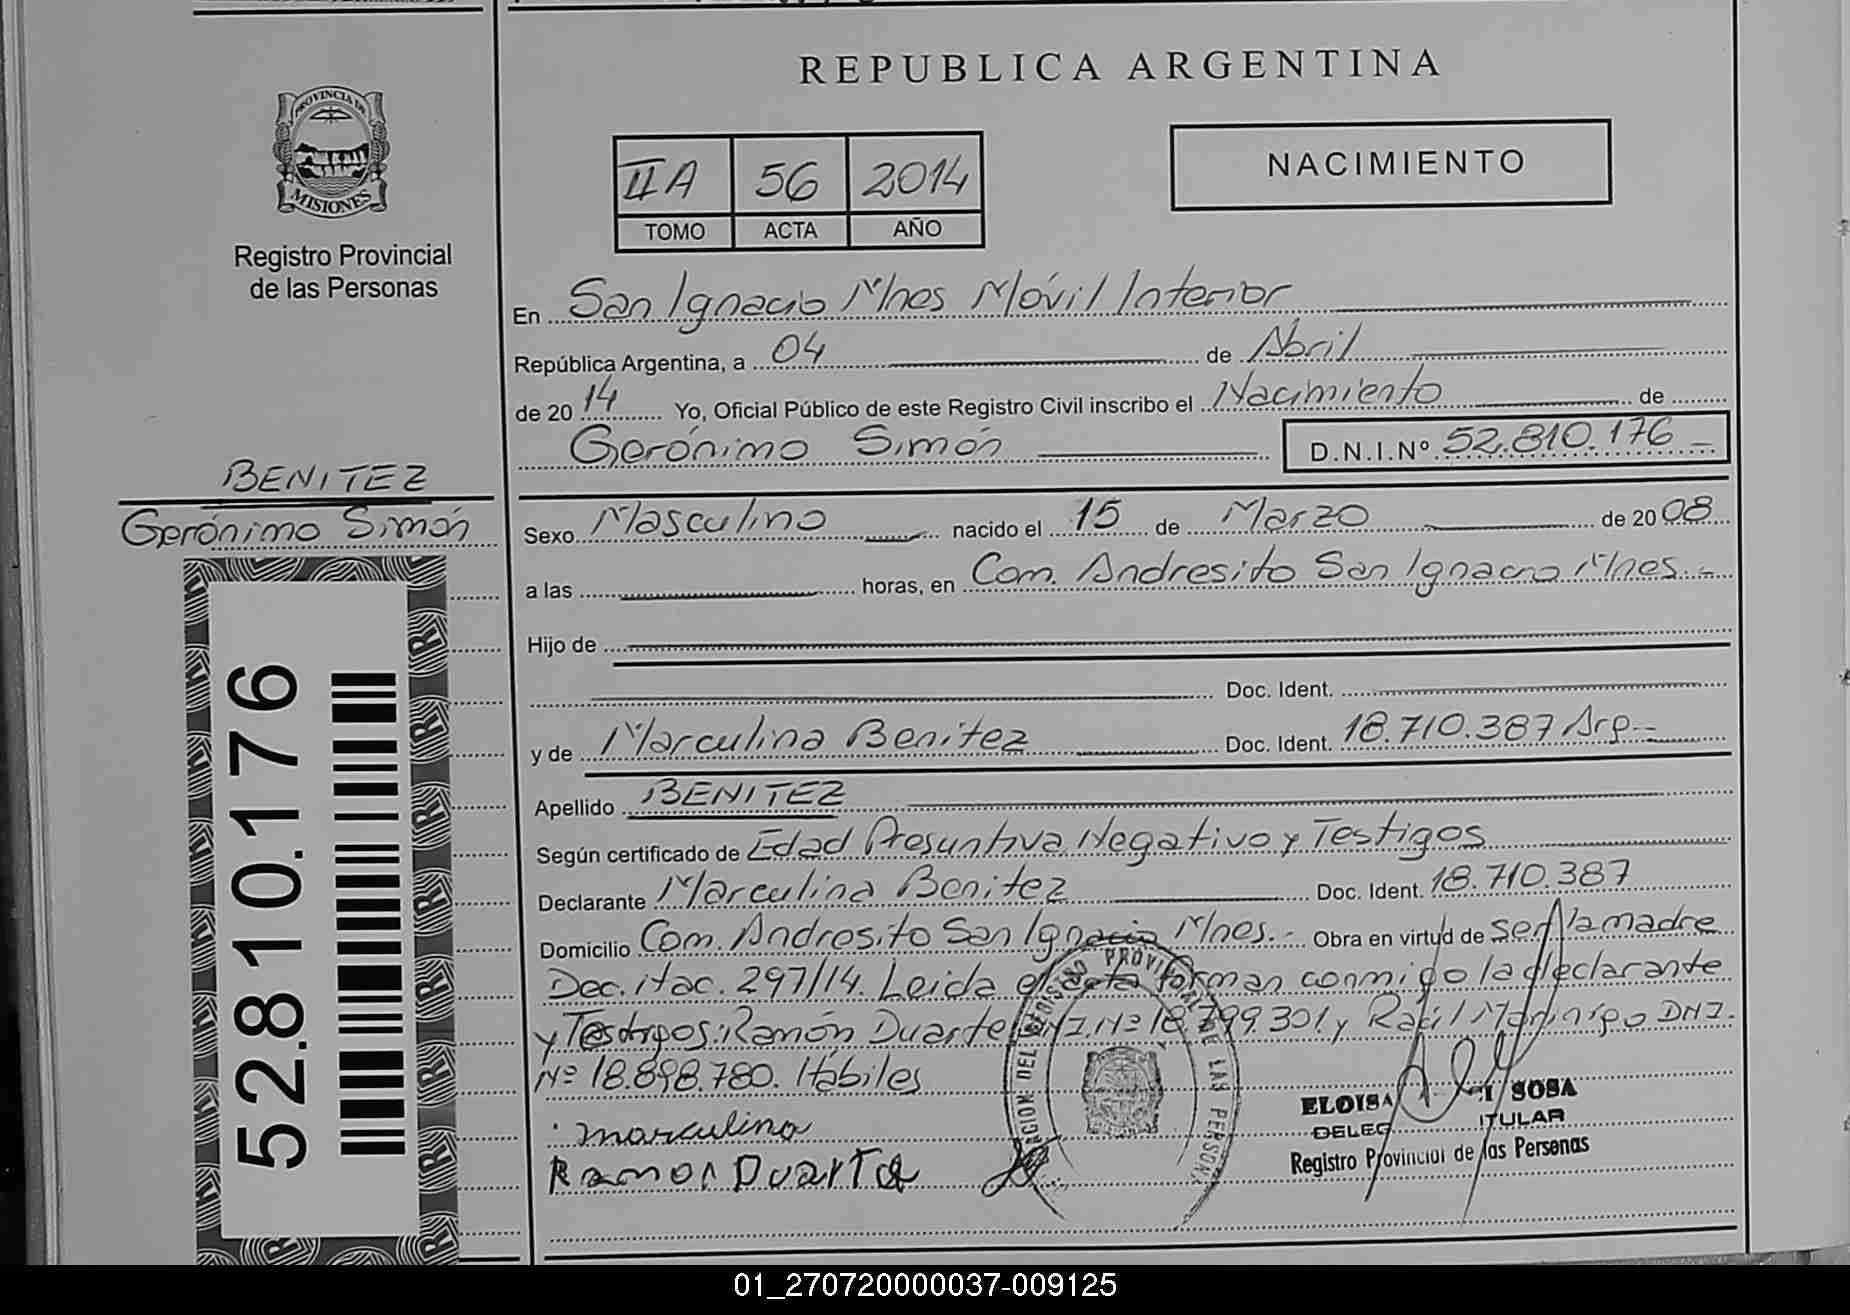 REPUBLICA ARGENTINA
PROVINCIA DE
MISIONES
Registro Provincial
de las Personas
IIA 56 2014
TOMO ACTA AÑO
NACIMIENTO
En San Ignacio Mnes Móvil Interior
República Argentina, a 04 de Abril
de 2014 Yo, Oficial Público de este Registro Civil inscribo el Nacimiento de
Gerónimo Simón D.N.I.Nº 52.810.176
BENITEZ
Gerónimo Simón
52.810.176
Sexo Masculino nacido el 15 de Marzo de 2008
a las horas, en Com. Andresito San Ignacio Mnes.-
Hijo de
Doc. Ident.
y de Marculina Benitez Doc. Ident. 18.710.387 Arg.-
Apellido BENITEZ
Según certificado de Edad Presuntiva, Negativo y Testigos
Declarante Marculina Benitez Doc. Ident. 18.710.387
Domicilio Com. Andresito San Ignacio Mnes.- Obra en virtud de ser la madre
Dec. Nac. 297/14. Leida el acta forman conmigo la declarante
y Testigos: Ramón Duarte DNI. Nº 18.799.301 y Raúl DNI.
Nº 18.898.780. Hábiles
marculina
Ramon Duarte
ELOISA SOSA
TITULAR
Registro Provincial de las Personas
01_270720000037-009125